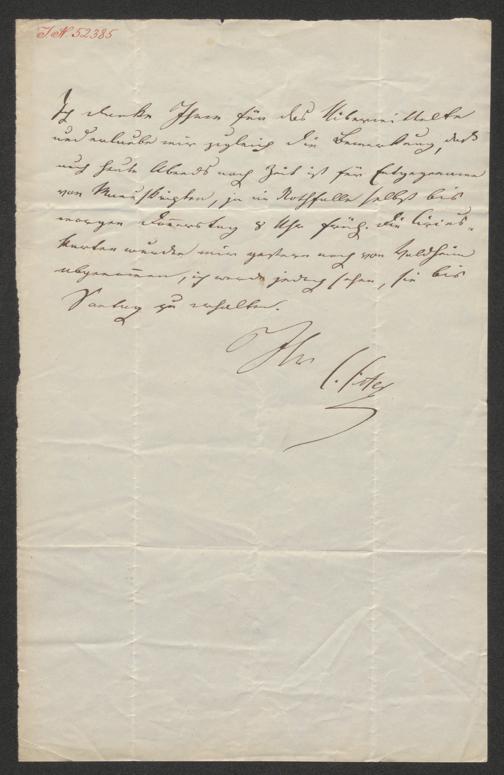 J.N. 52385
Ich danke Ihnen für das Übermittelte
und erlaube mir zugleich die Bemerkung, daß
auch heute Abends noch Zeit ist für Entgegennahme
von Manuskripten, ja im Nothfalle selbst bis
morgen Donnerstag 8 Uhr früh. Die Circus-
karten wurden mir gestern noch von
abgenommen, ich werde jedoch sehen, sie bis
Samstag zu erhalten.
Ihr